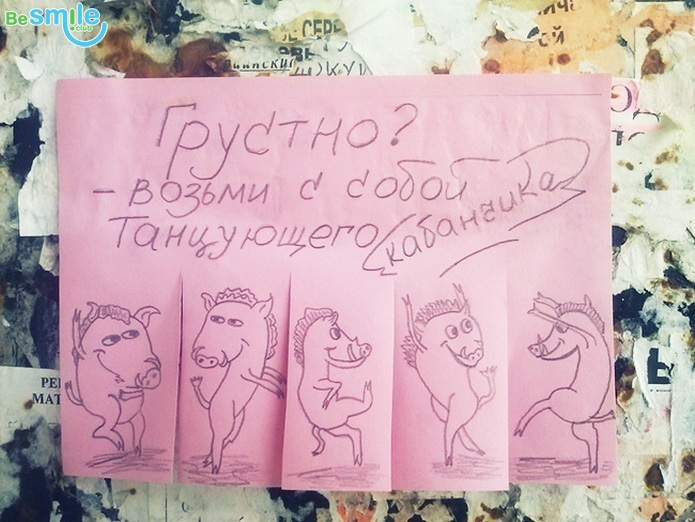 BeSmile
.club
Грустно?
- возьми с собой
танцующего кабанчика